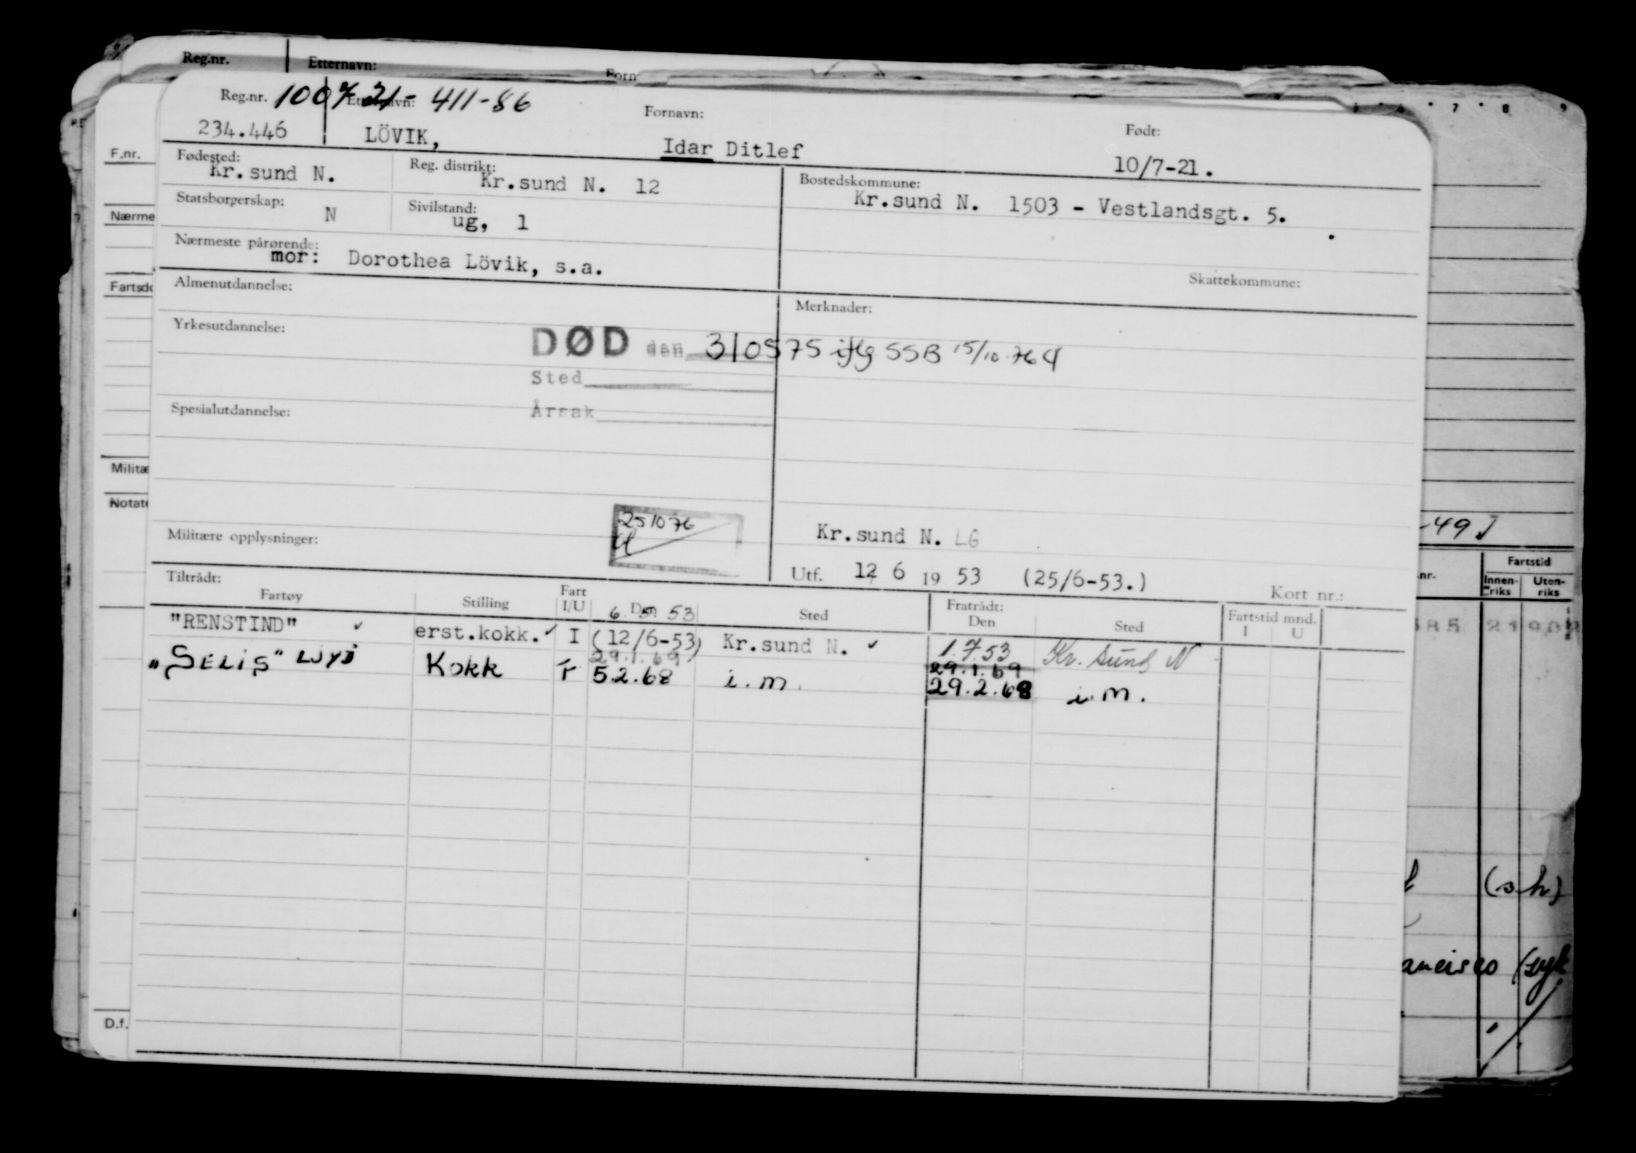 Reg.nr. Etternavn: Forn
Reg.nr. 100721- 411-86 Fornavn: Født:
234.446 LÖVIK, Idar Ditlef 10/7-21.
Fødested: Reg. distrikt: Bostedskommune:
Kr.sund N. Kr.sund N. 12 Kr.sund N. 1503 - Vestlandsgt. 5.
Statsborgerskap: N Sivilstand: ug, 1
Nærmeste pårørende:
mor: Dorothea Lövik, s.a.
Skattekommune:
Almenutdannelse: Merknader:
Yrkesutdannelse:
DØD den 310575 iflg SSB 15/10-76
Sted
Spesialutdannelse: Årsak
251076
Militære opplysninger: Kr.sund N. LG
Utf. 12 6 19 53 (25/6-53.) Kort nr.:
Tiltrådt: Fratrådt: Fartstid mnd.
Fartøy Stilling Fart I/U Den Sted Den Sted I U
6. 53
"RENSTIND" erst.kokk. I (12/6-53) Kr.sund N. 1.7.53 Kr. sund N
29.1.69 29.1.69
"SELIS" LJYJ Kokk F 5.2.68 i.m. 29.2.68 i.m.
F.nr.
Nærme
Fartsdo
Militæ
Notate
D.f.
5 6 7 8 9
-49]
nr. Fartstid
Innen-riks Uten-riks
585 21 902
(s h)
ancisco (syk